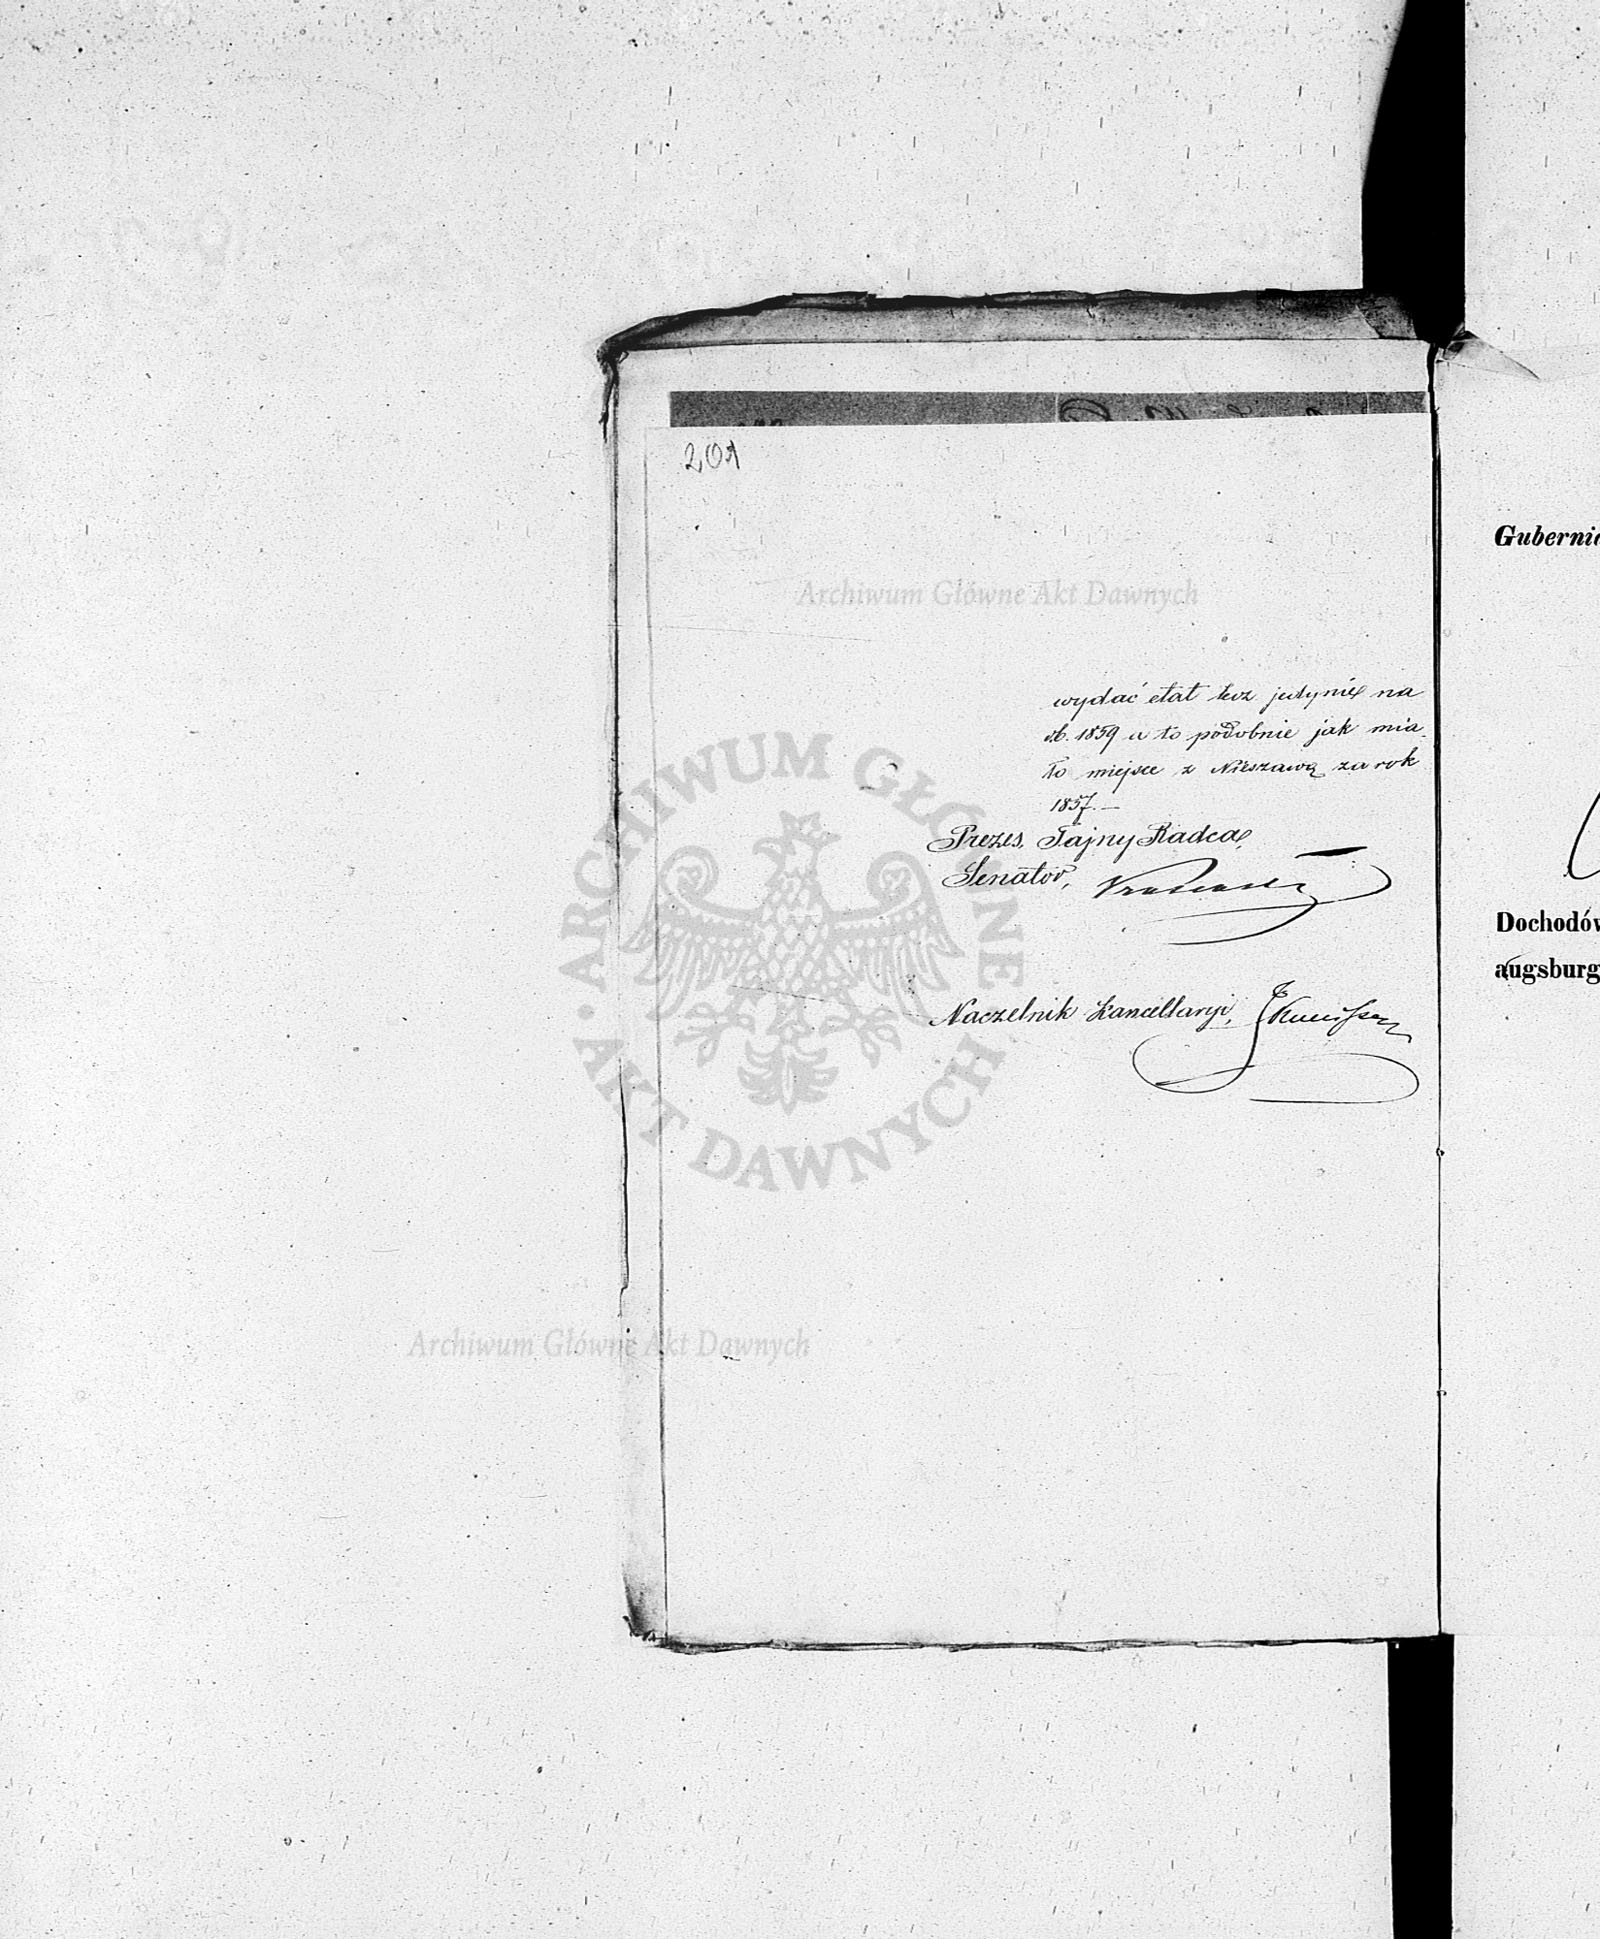 201
Archiwum Główne Akt Dawnych
wydać etat lecz jedynie na
r.b. 1859 a to podobnie jak mia
ło miejsce z Nieszawą za rok
1857. —
Prezes, Tajny Radca,
Senator,
Naczelnik Kancellaryi,
ARCHIWUM GŁÓWNE
AKT DAWNYCH
Archiwum Główne Akt Dawnych
Gubernia
Dochodów
augsburg